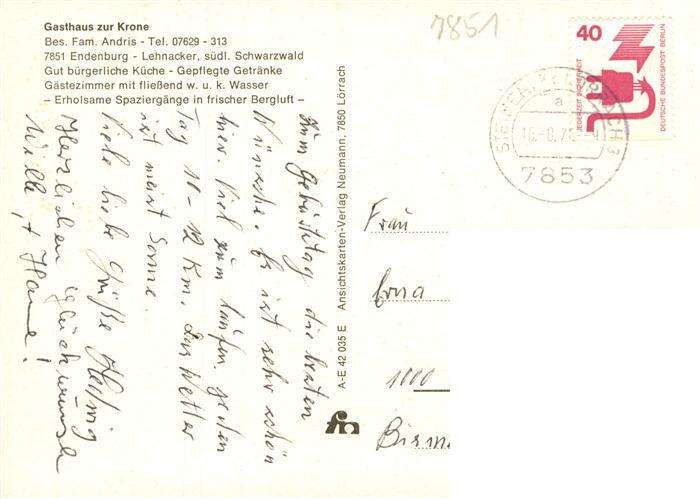 Gasthaus zur Krone
Bes. Fam. Andris - Tel. 07629 - 313
7851 Endenburg - Lehnacker, südl. Schwarzwald
Gut bürgerliche Küche - Gepflegte Getränke
Gästezimmer mit fließend w. u. k. Wasser
– Erholsame Spaziergänge in frischer Bergluft –
7851
40
JEDERZEIT SICHERHEIT
DEUTSCHE BUNDESPOST BERLIN
a
7853
Zum Gebutstag die besten
Wünsche. Es ist sehr schön
hier. Viel zum laufen. Jeden
Tag 10 - 12 Km. Das Wetter
ist meist Sonne.
Viele liebe Grüße Hedwig
Herzlichen Glückwunsch
Willi, + Hanne!
A-E 42 035 E Ansichtskarten-Verlag Neumann, 7850 Lörrach
Frau
Erna
1000
Bism